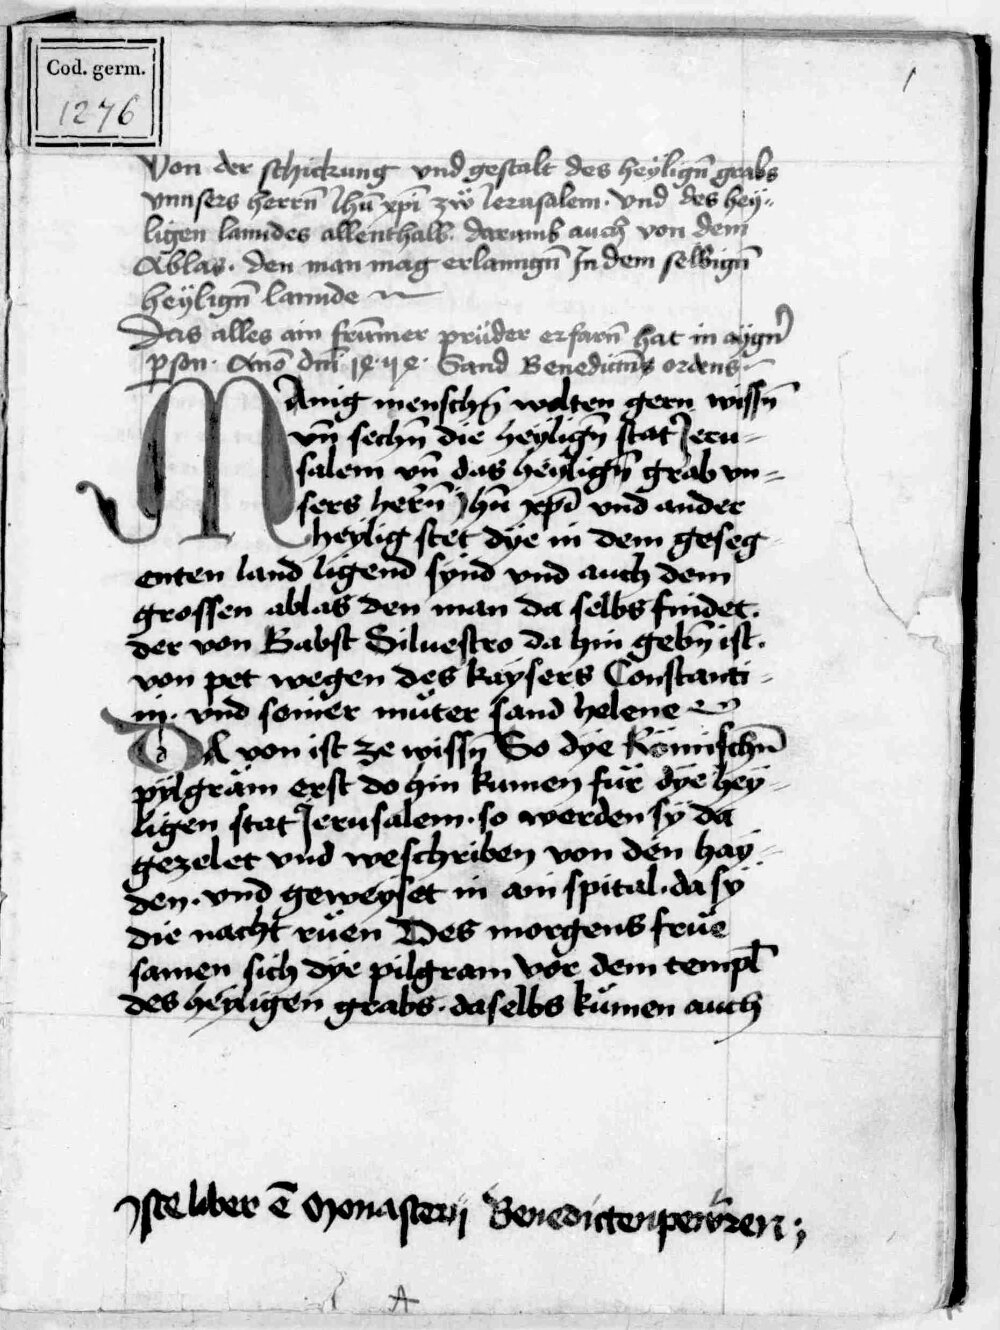 Cod. germ.
1276
1
Von der schickung vnd gestalt des heÿligñ grabs
vnnsers herrñ Jhũ xp̃i zẅ Jerusalem. vnd des heÿ=
ligen lanndes allenthalb. darumb auch von dem
Ablas. den man mag erlanngñ Jn dem selbigñ
heÿligñ lannde
Das alles ain frũmer prüder erfarñ hat in aÿgñ
pson. Anõ dñi Sand Benedictus ordens.
MAnig menschñ wolten gern wissñ
vñ sechñ die heÿligñ stat Jeru=
salem vñ das heÿligñ grab vn=
sers herñ Jhũ xp̃i vnd ander
heÿlig stet dÿe in dem geseg
enten land ligend sÿnd vnd auch dem
grossen ablas den man da selbs findet.
der von Babst Siluestro da hin gebñ ist.
von pet wegen des kaÿsers Constanti=
ni. vnd seiner müter sand helene
DA von ist ze wissñ So dÿe Römischñ
pÿlgräm erst do hin kumen für dÿe heÿ=
ligen stat Jerusalem. so werden sÿ da
gezelet vnd weschriben von den haÿ=
den. vnd geweÿset in ain spital. da sÿ
die nacht rüen Des morgens früe
samen sich dÿe pilgram vor dem templ
des heÿligen grabs. daselbs kümen auch
Iste liber ẽ Monasterij Benedictenpewren;
A